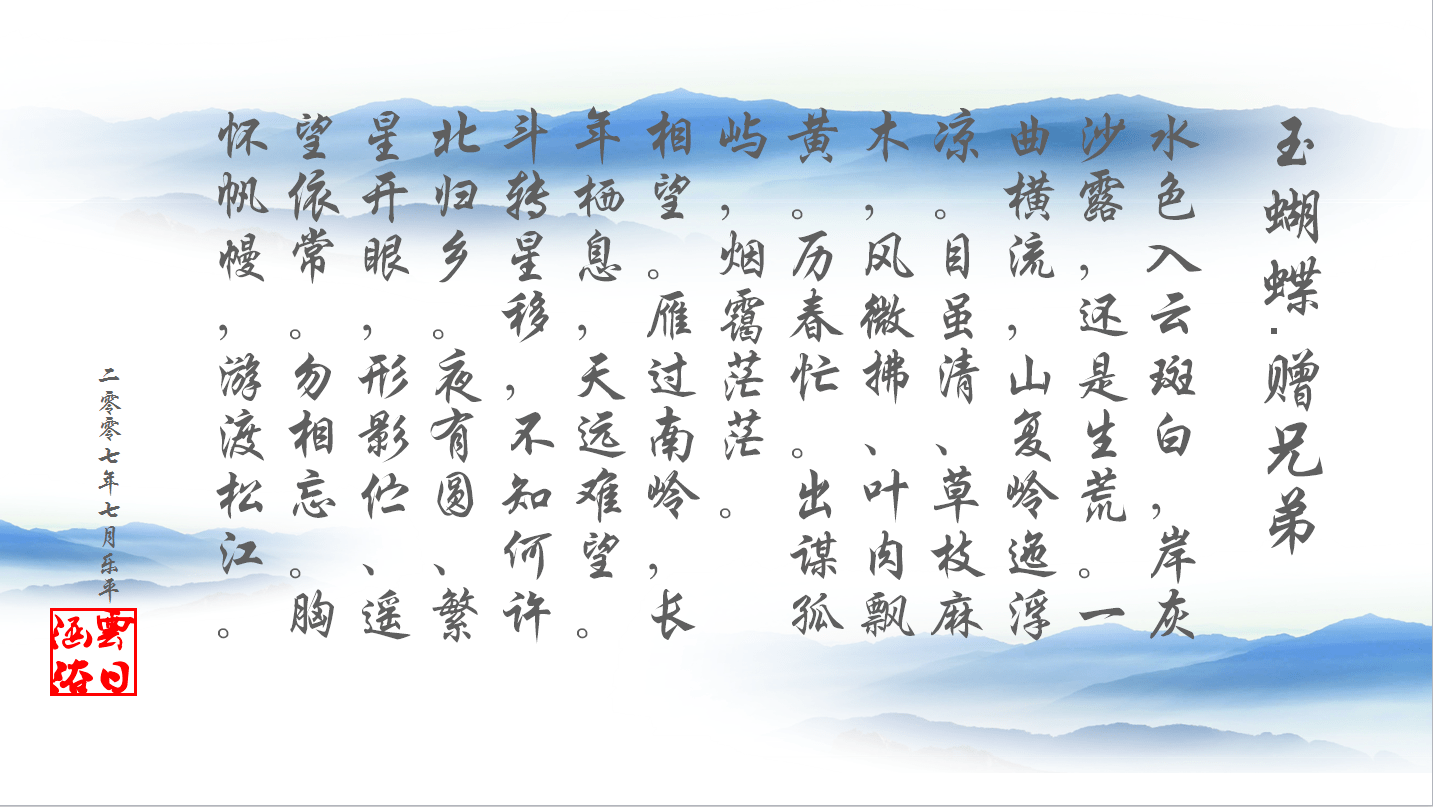 玉蝴蝶·赠兄弟
水色入云斑白，岸灰
沙露，还是生荒。一
曲横流，山复岭迤浮
凉。目虽清、草枝麻
木，风微拂、叶肉飘
黄。历春忙。出谋孤
屿，烟霭茫茫。
相望。雁过南岭，长
年栖息，天远难望。
斗转星移，不知何许
北归乡。夜有圆、繁
星开眼，形影伫、遥
望依常。勿相忘。胸
怀帆幔，游渡松江。
二零零七年七月乐平
雲日
涵浴